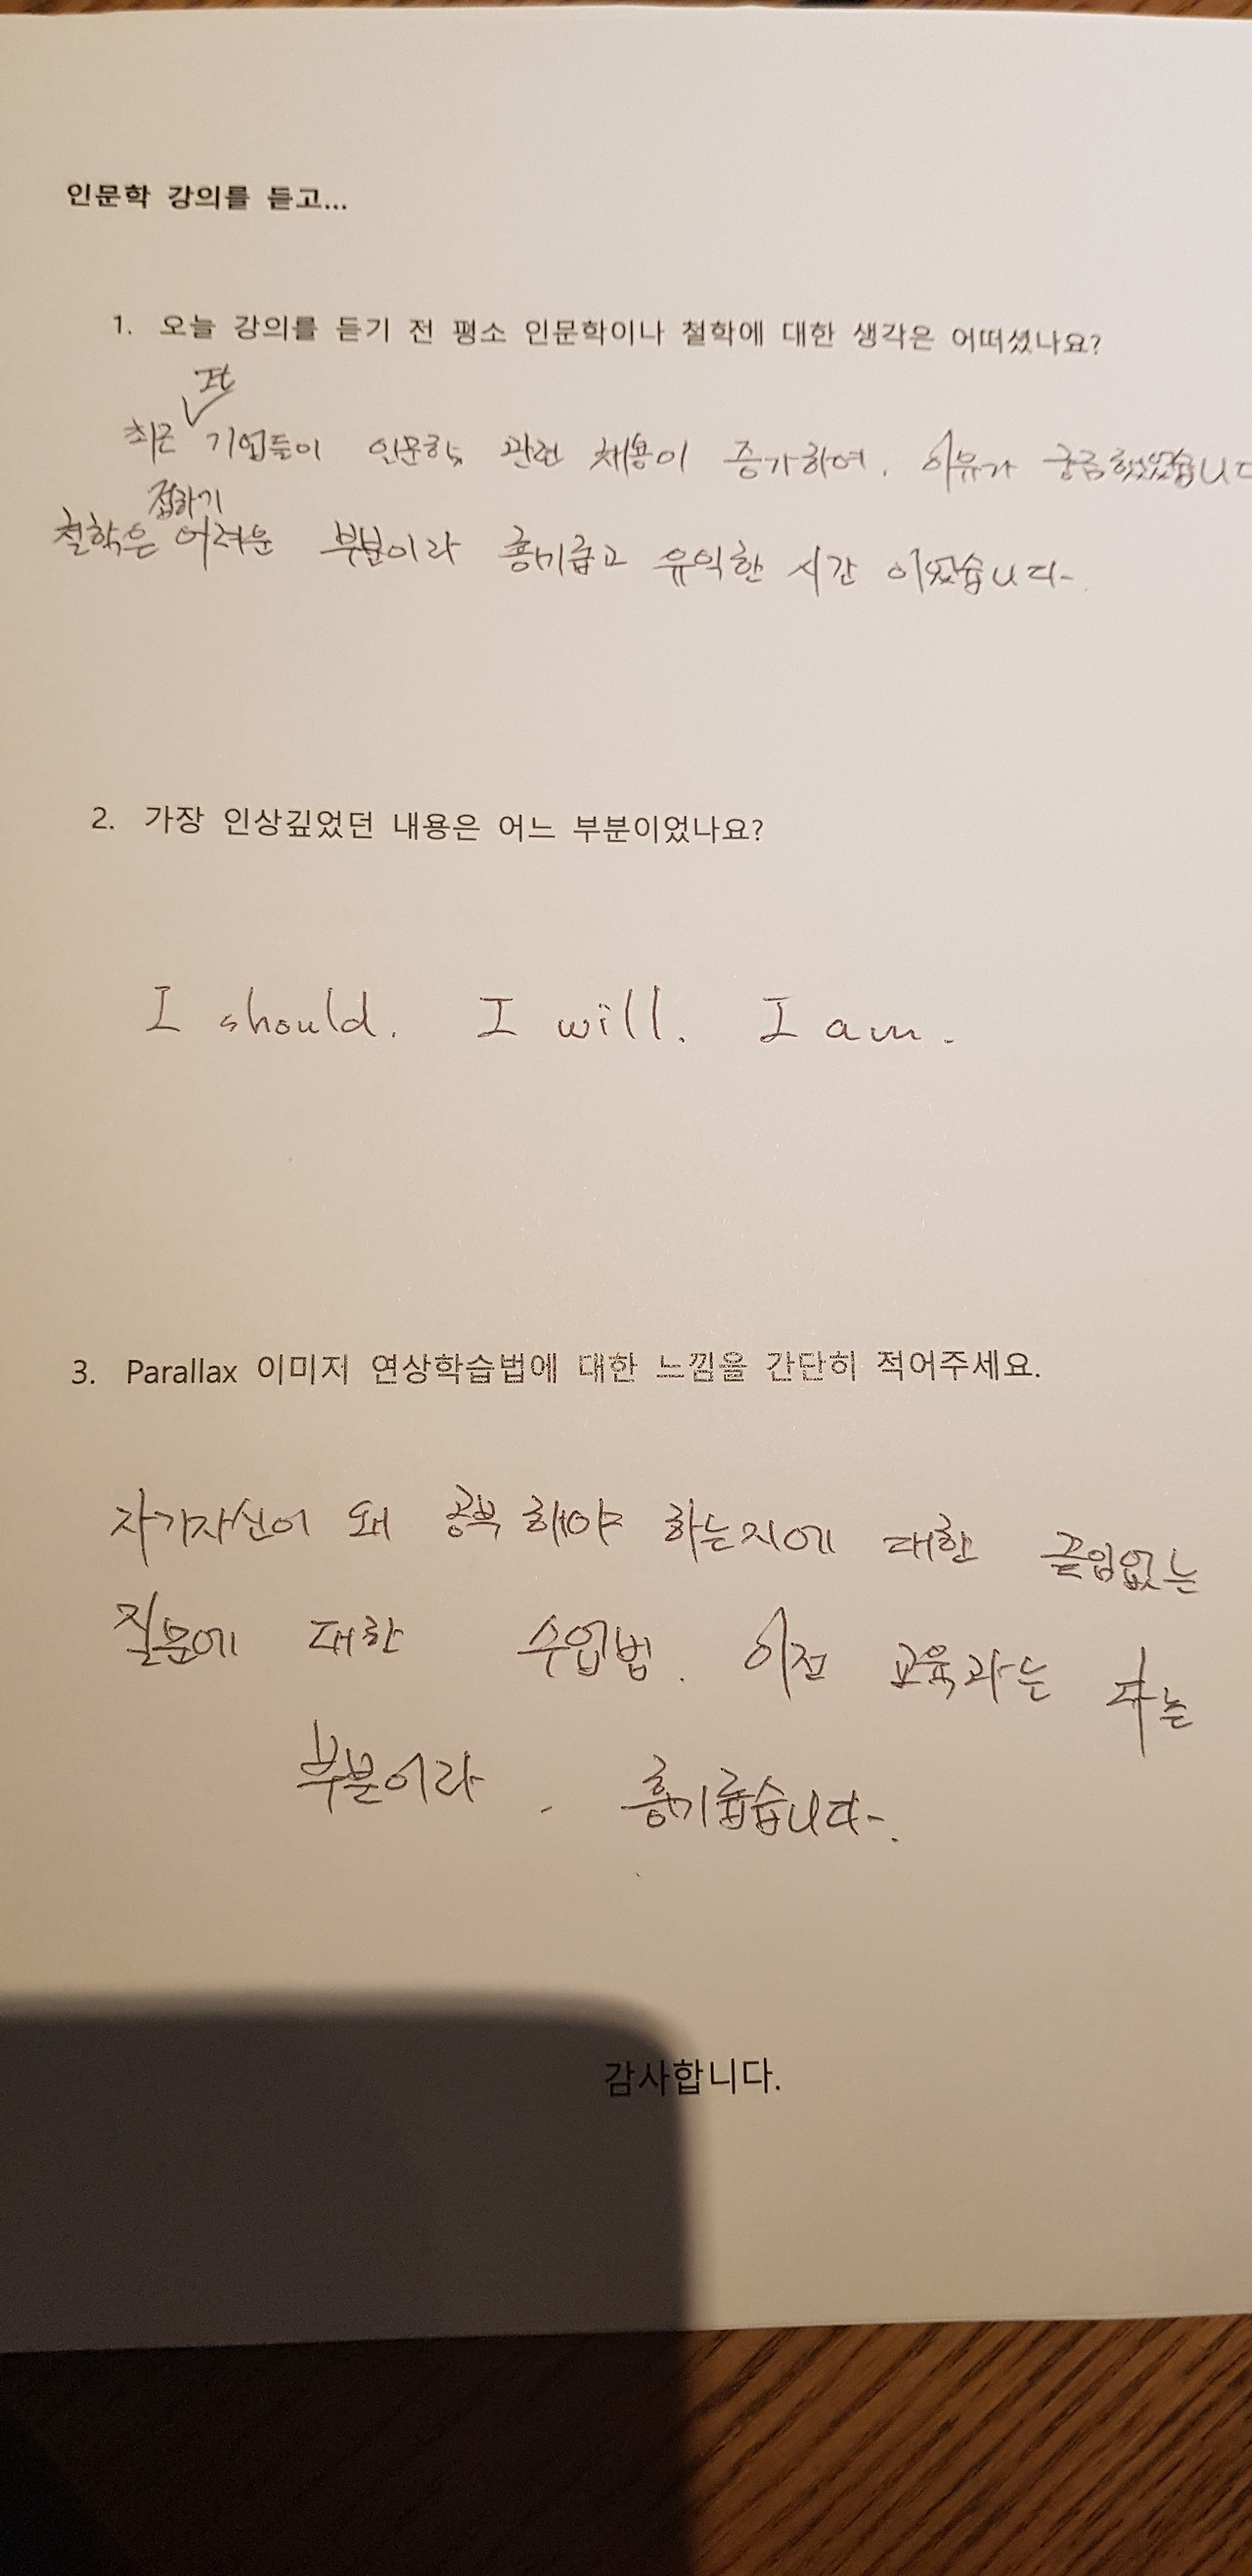 인문학 강의를 듣고...
1. 오늘 강의를 듣기 전 평소 인문학이나 철학에 대한 생각은 어떠셨나요?
최근 기업들이 인문학 관련 채용이 증가하여. 이유가 궁금했었습니다
접하기
철학은 어려운 부분이라 흥미롭고 유익한 시간 이었습니다.
2. 가장 인상깊었던 내용은 어느 부분이었나요?
I should. I will. I am.
3. Parallax 이미지 연상학습법에 대한 느낌을 간단히 적어주세요.
자기자신이 왜 공부 해야 하는지에 대한 끝임없는
질문에 대한 수업법. 이전 교육과는 다른
부분이라. 흥미롭습니다.
감사합니다.